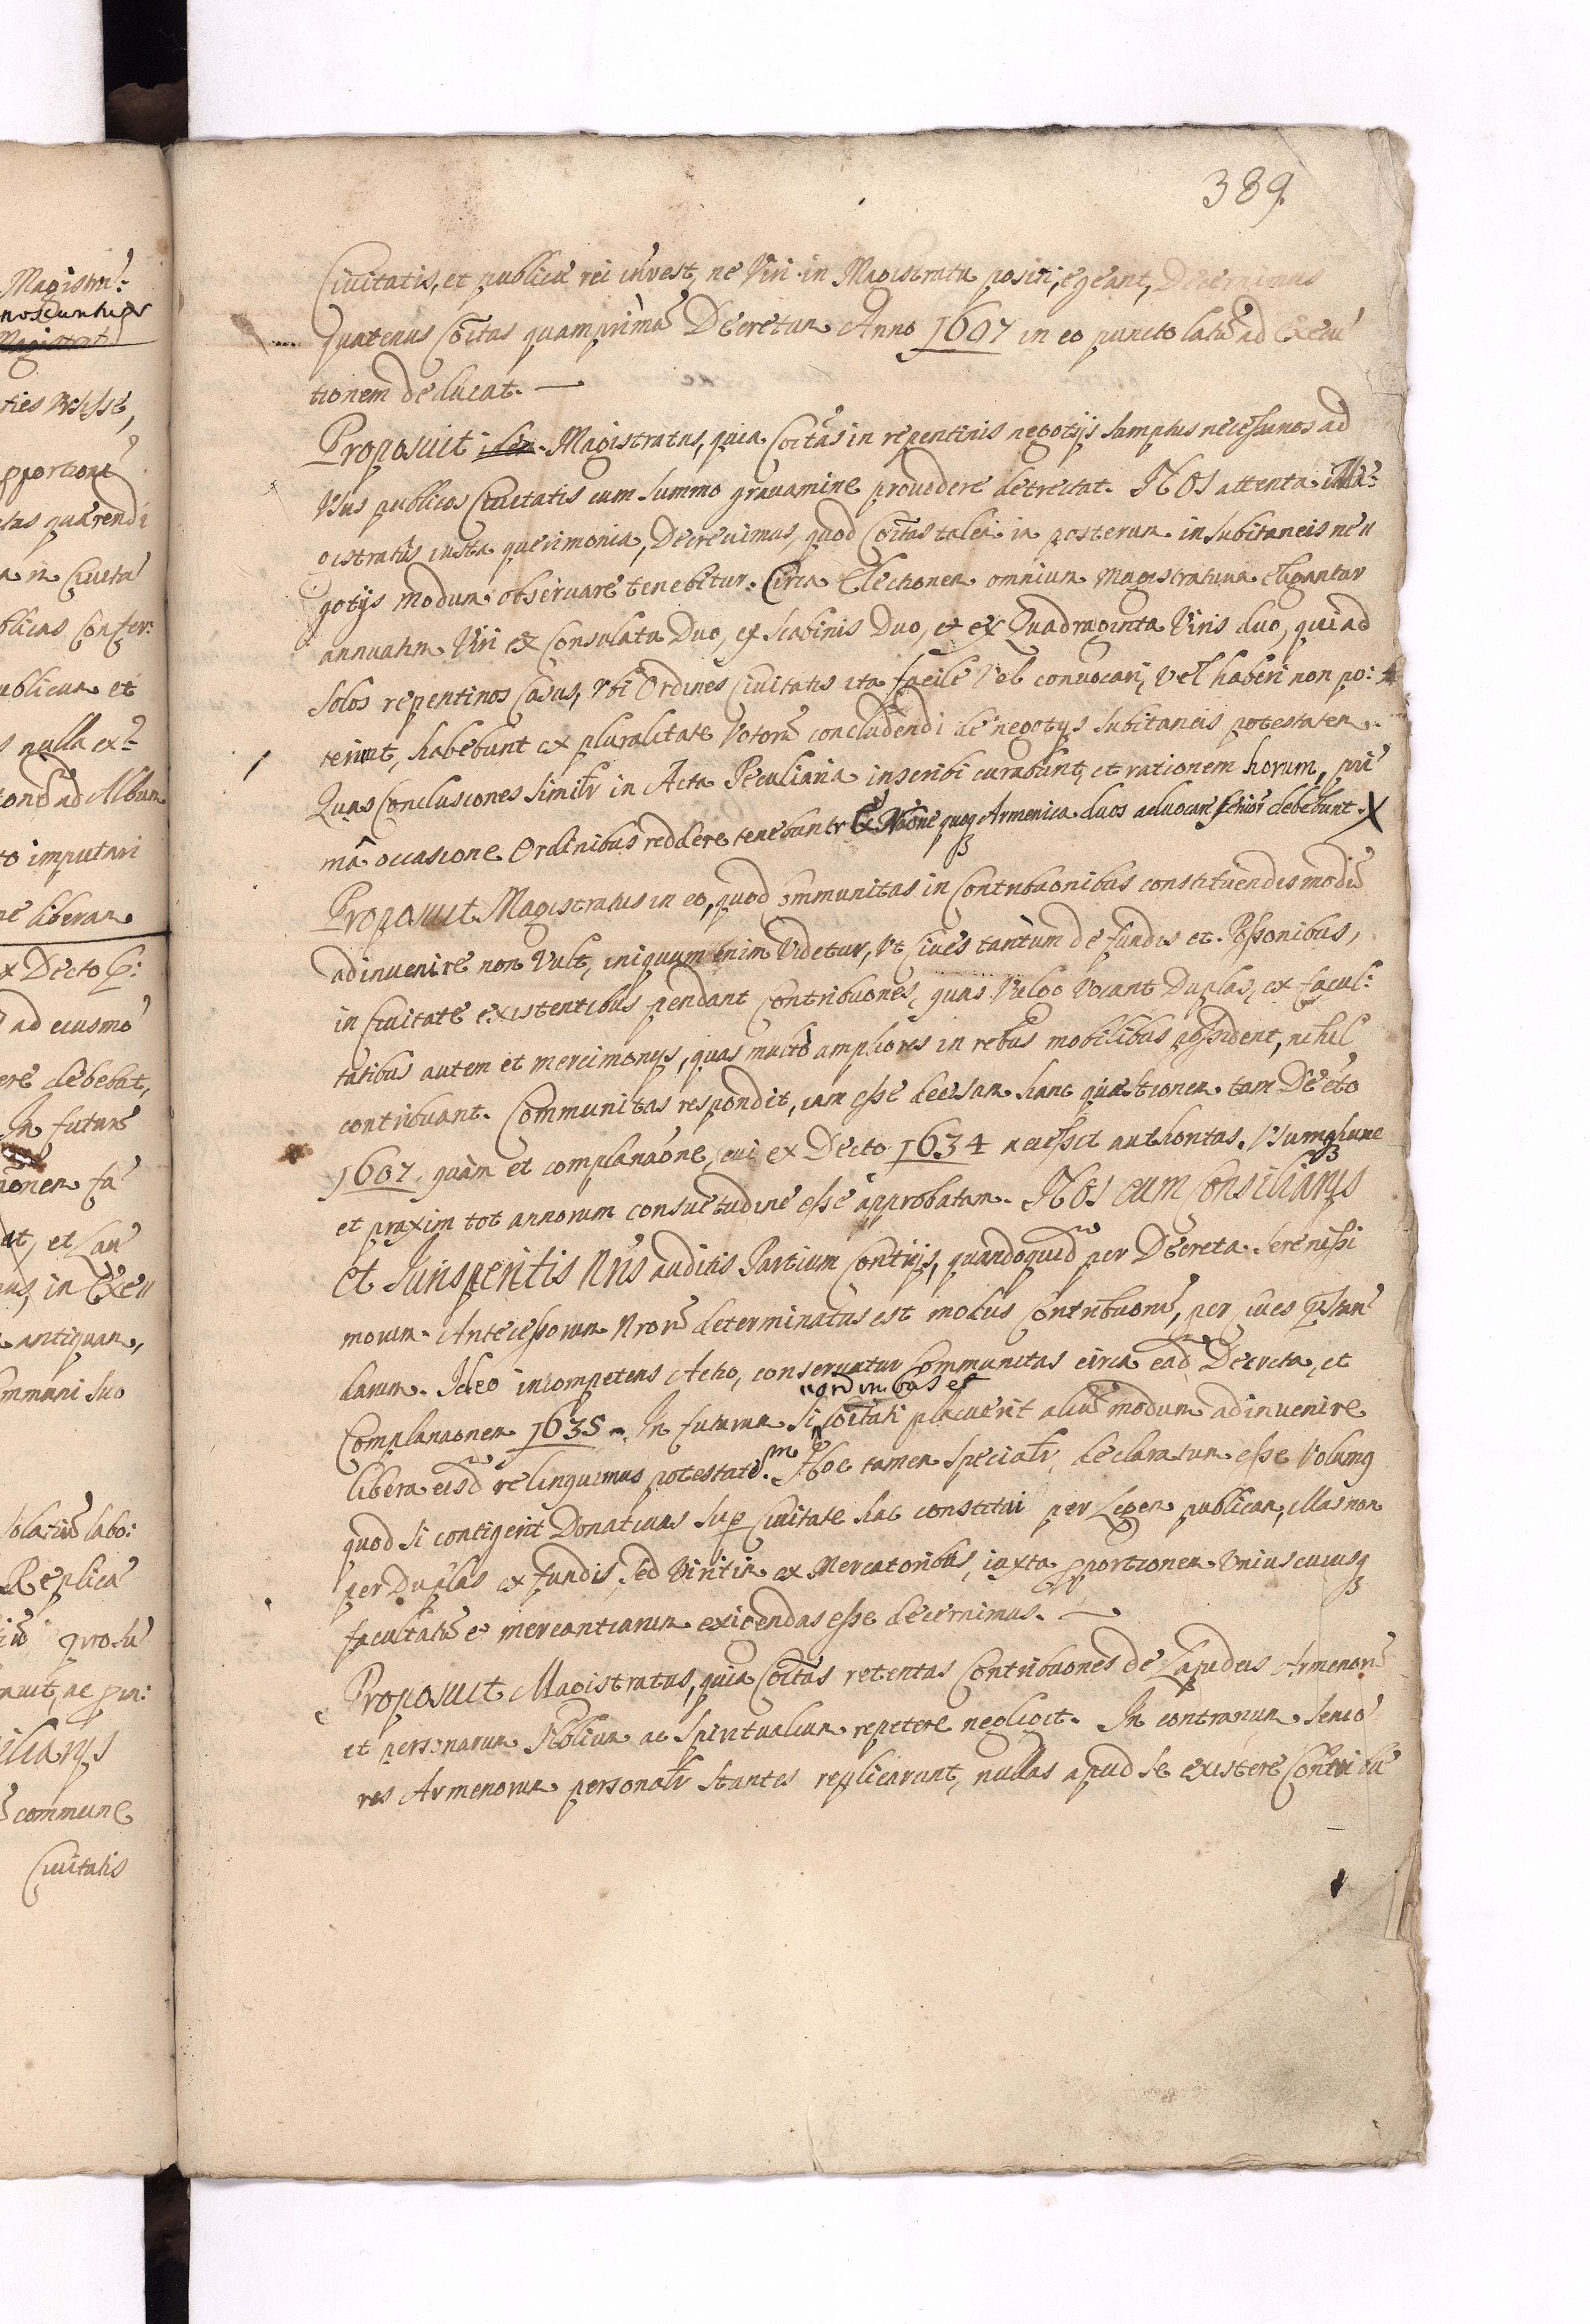 389
Civitatis, et publicæ rei invest, ne Viri in Magistratu positi, egeant, Decernimus
Quatenus Cõitas quamprimũ Decretum Anno 1607 in eo puncto latũ ad Execu
tionem deducat. —
Proposuit Magistratus, quia Cõitas in repentinis negotijs sumptus necessarios ad
Usus publicos Civitatis cum summo gravamine providere detrectat. NOS attenta Ma:
gistratus iusta querimonia, Decrevimus, quod Cõitas talem in posterum in subitaneis ne//
gotijs modum observare tenebitur. Circa Electionem omnium Magistratuum eligantur
annuatim Viri ex Consulatu Duo, ex Scabinis Duo, et ex Quadraginta Viris duo, qui ad
solos repentinos Casus, Ubi Ordines Civitatis ita facile Vel convocari, Vel haberi non po:
terint, habebunt ex pluralitate Votorũ concludendi de negotijs subitaneis potestatem.
Quas Conclusiones similr in Acta Peculiaria inscribi curabunt, et rationem horum, pri
mâ occasione Ordinibus reddere tenebuntr Ex Nõne quoq Armenica duos advocare debebunt. X
Proposuit Magistratus in eo, quod Cõmmunitas in Contribuõnibus constituendis modũ
adinvenire non Vult, iniquum enim Videtur, Ut Cives tantùm de fundis et Possonibus,
in Civitate existentibus pendant Contribuones, quas Vulgo Vocant Duplas, ex facul:
tatibus autem et mercimonijs, quas multò ampliores in rebus mobilibus possident, nihil
contribuant. Communitas respondit, iam esse decisam hanc quæstionem tam Decto
1607. quàm et complanaõne, cui ex Decto 1634 accessit authoritas. Usumq hunc
et praxim tot annorum consuetudine esse approbatam. NOS cum Consiliarijs
et Iurisperitis Nris auditis Partium Contrijs, quandoquidẽ per Decreta Serenissi
morum Antecessorum Nrorũ determinatus est modus Contribuonũ, per cives præstan
darum. Ideo incompetens Actio, conservatur Communitas circa eadẽ Decreta, et
Complanaonem 1635. In futurum si Ordinibus et Cõitati placuerit aliũ modum adinvenire
liberã eisdẽ relinquimus potestatẽ. Hoc tamen specialr declaratum esse Volumq
quod si contigerit Donativas sup Civitate hac constitui per Legem publicam, illas non
per Duplas ex fundis, sed Viritim ex Mercatoribus, iuxta pportionem Uniuscuiusq
facultatũ et mercantiarum exigendas esse decernimus. —
Proposuit Magistratus, quia Cõitas retentas Contribuones de Lapideis Armenorũ
et personarum Nobilium ac Spiritualium repetere negligit. In contrarium Senio
res Armenorum personalr stantes replicarunt, nullas apud se existere Contribu
Magistrũ:
noscuntur
ties
pportione
quærendi
in Civita
blicas Confer:
ublicum et
s nulla ex:
ad Album
to imputari
ne liberam
ex Decto
ad eiusmo
ere debebat,
In futurũ
onem fa
at, et Lau
in Exe//
antiquam,
ommuni suo
labo:
Replica
ilianjs
commune
Civitatis